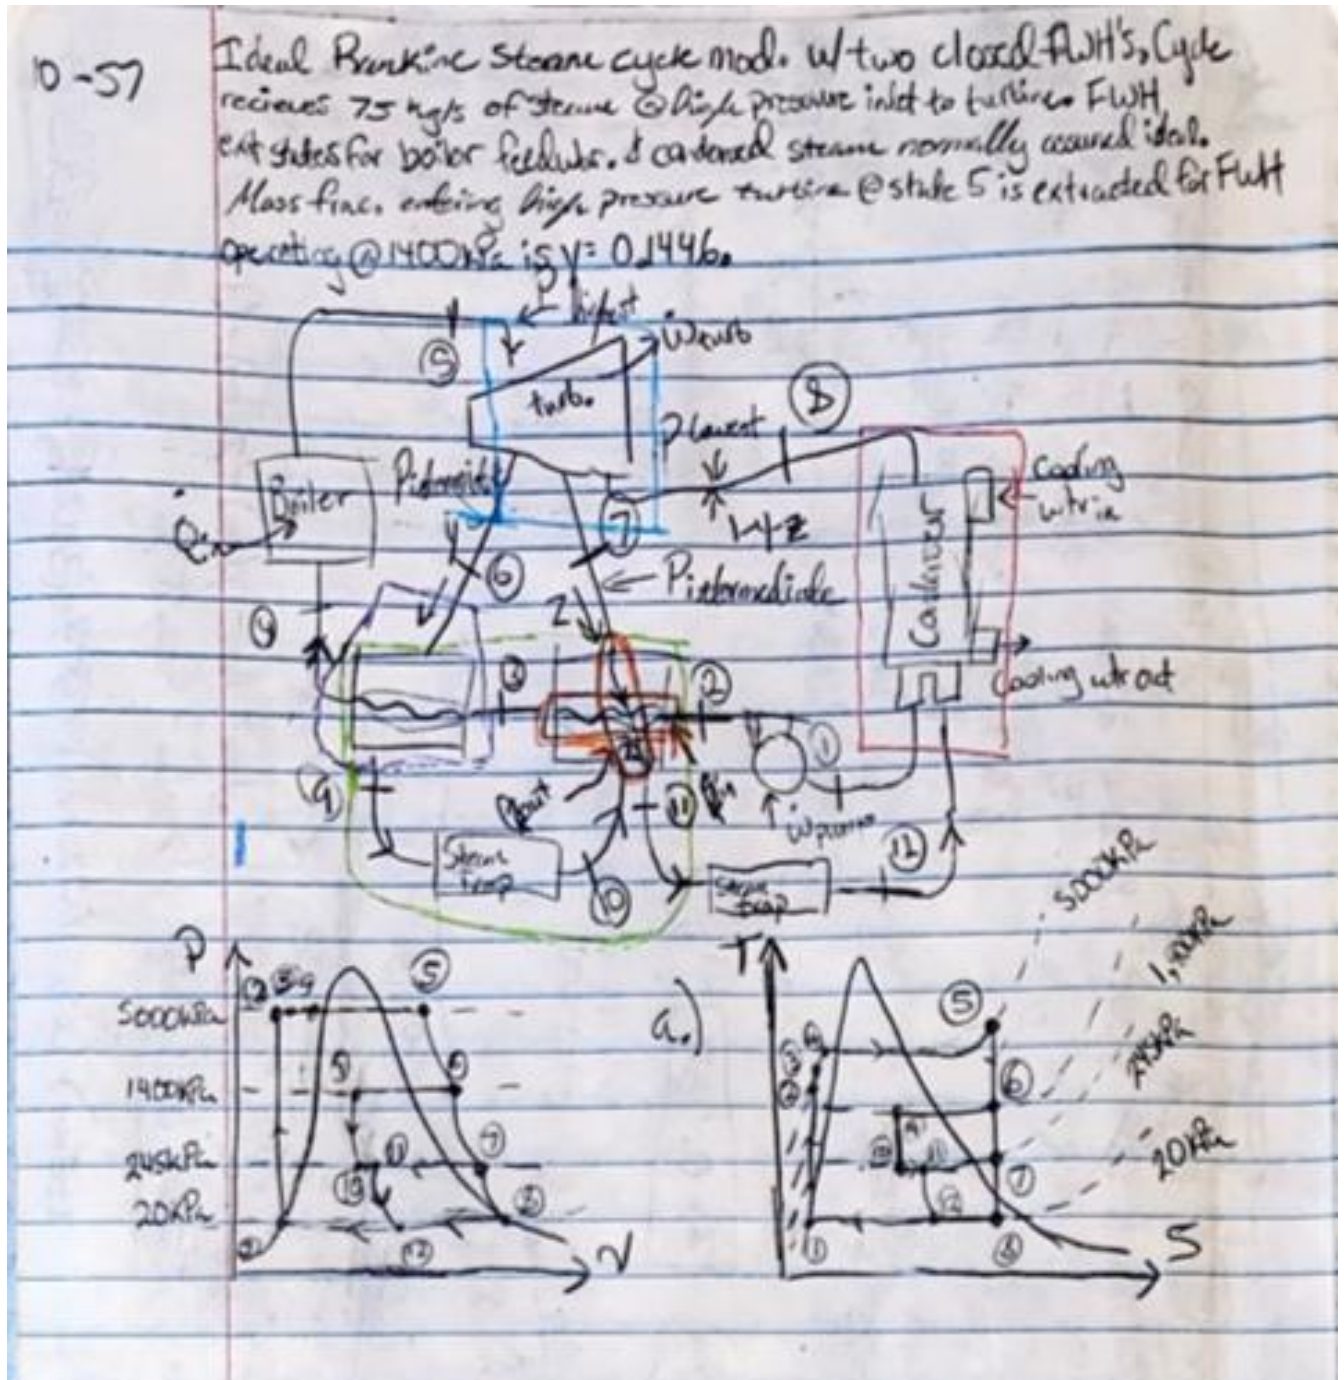 10-57
Ideal Rankine steam cycle mod. w/ two closed FWH's, Cycle
recieves 75 kg/s of steam @ high pressure inlet to turbine. FWH
exit states for boiler feedwtr. & condensed steam normally assumed ideal.
Mass frac. entering high pressure turbine @ state 5 is extracted for FWH
operating @ 1400kPa is y= 0.1446.
P highest
5
Wturb
turb.
P lowest
8
Boiler
Qin
y
6
7
1-y-z
Condenser
Cooling
wtr in
Pintermediate
z
4
3
2
Cooling wtr out
1
9
qout
11
qin
Wpump
Steam
trap
10
Steam
trap
12
P
5000kPa
1400kPa
245kPa
20kPa
5
6
7
8
9
10
11
12
V
a.)
T
5000kPa
1,400kPa
245kPa
20kPa
5
6
7
8
4
3
2
1
9
10
11
12
S